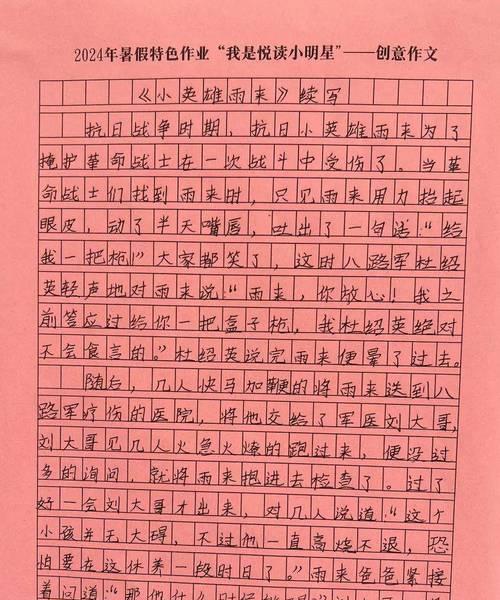 2024年暑假特色作业“我是悦读小明星”——创意作文
《小英雄雨来》续写
抗日战争时期，抗日小英雄雨来为了
掩护革命战士在一次战斗中受伤了。当革
命战士们找到雨来时，只见雨来用力抬起
眼皮，动了半天嘴唇，吐出了一句话：“给
我一把枪！”大家都笑了，这时八路军杜绍
英轻声地对雨来说：“雨来，你放心！我之
前答应过给你一把盒子枪，我杜绍英绝对
不会食言的。”杜绍英说完雨来便晕了过去。
随后，几人快马加鞭的将雨来送到八
路军疗伤的医院，将他交给了军医刘大哥，
刘大哥见几人火急火燎的跑过来，便没过
多的询问，就将雨来抱进去检查了。过了
好一会刘大哥才出来，对几人说道：“这个
小孩并无大碍，不过他一直高烧不退，恐
怕要在这休养一段时日了。”雨来爸爸紧接
着问道：“那他什么时候能